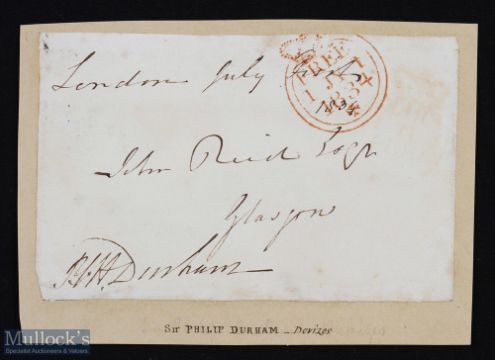 London July first
FREE
1834
John Reid Esqr
Glasgow
Durham
Sir PHILIP DURHAM _ Devizes
Mullock's
Specialist Auctioneers & Valuers